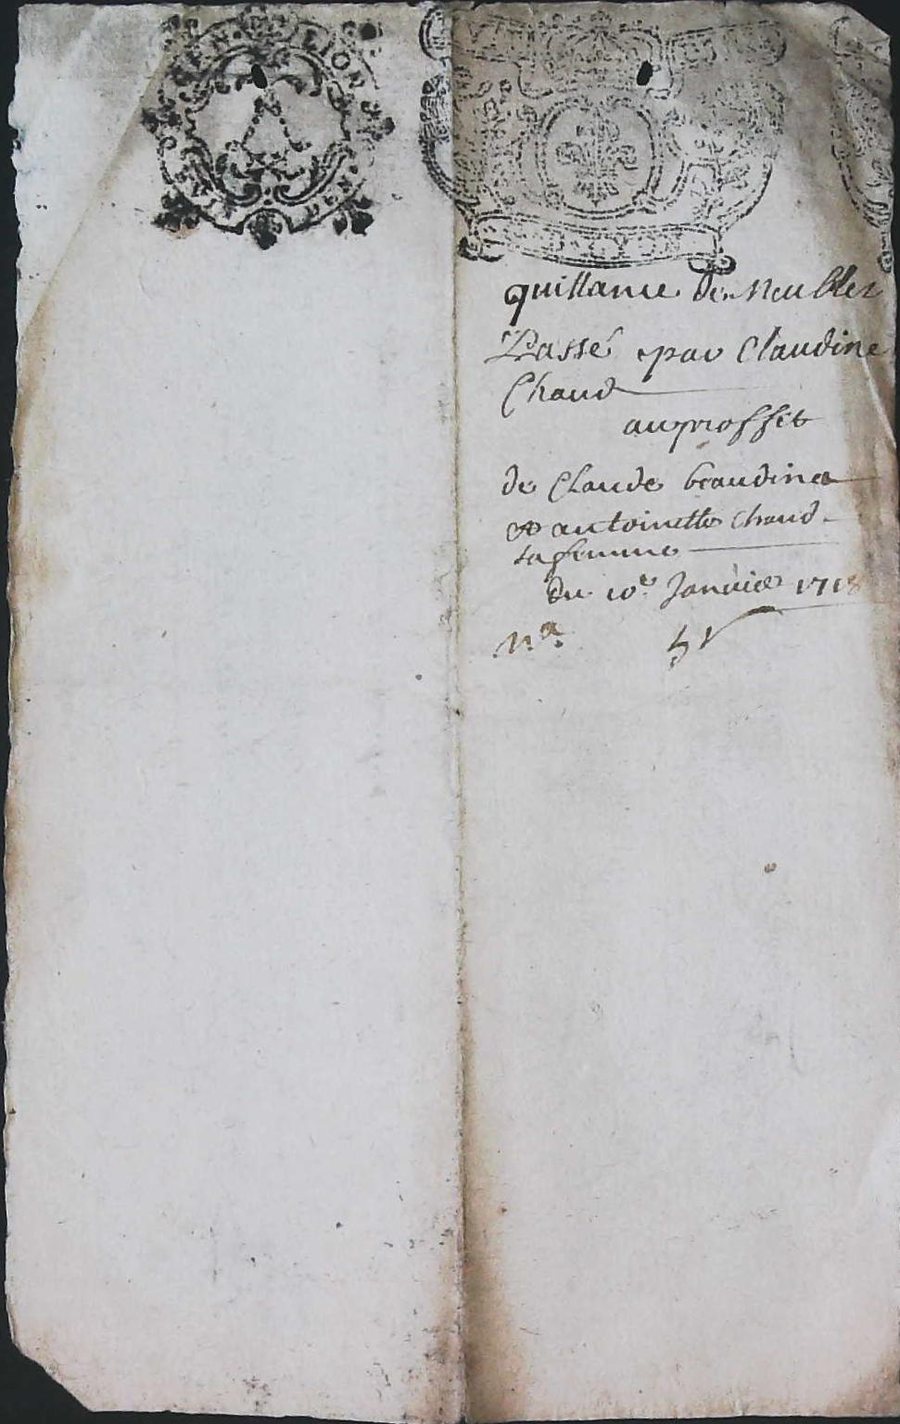 GEN. LION
quittance de Meubles
Passé par Claudine
Chaud
au proffit
de Claude beaudinet
et antoinette Chaud
sa femme
du 10e Janvier 1718